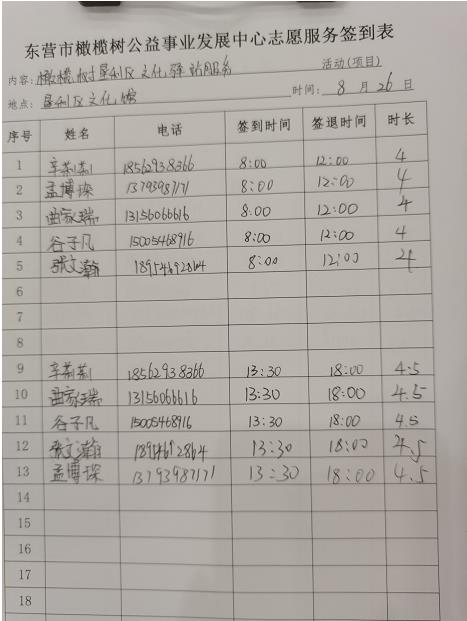 东营市橄榄树公益事业发展中心志愿服务签到表
内容: 橄榄树垦利区文化驿站服务 活动(项目)
地点: 垦利区文化馆 时间: 8 月 26 日
序号 姓名 电话 签到时间 签退时间 时长
1 辛莉莉 18562938366 8:00 12:00 4
2 孟博琛 13793987171 8:00 12:00 4
3 曲家瑞 13156066616 8:00 12:00 4
4 谷子凡 15005468916 8:00 12:00 4
5 张文瀚 18954692864 8:00 12:00 4
6
7
8
9 辛莉莉 18562938366 13:30 18:00 4.5
10 曲家瑞 13156066616 13:30 18:00 4.5
11 谷子凡 15005468916 13:30 18:00 4.5
12 张文瀚 18954692864 13:30 18:00 4.5
13 孟博琛 13793987171 13:30 18:00 4.5
14
15
16
17
18